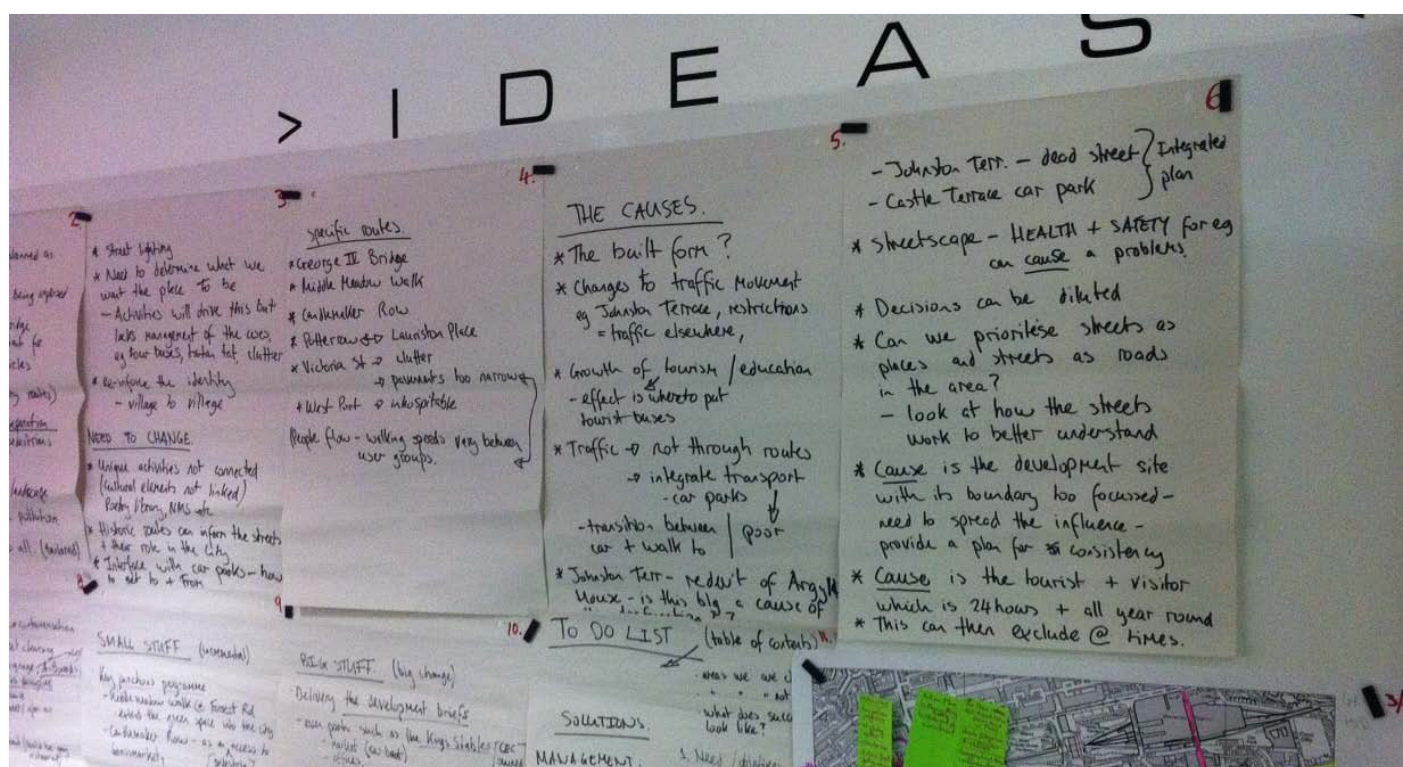 > I D E A S
2.
* Street lighting
* Need to determine what we
want the place to be
- Activities will drive this but
lacks management of the uses,
eg tour buses, tartan tat, clutter
* Re-inforce the identity
- village to village
NEED TO CHANGE.
* Unique activities not connected
(cultural elements not linked)
Poetry library, NMS etc
* Historic routes can inform the streets
+ their role in the City
* Interface with car parks - how
to get to + from
3.
specific routes.
* George IV Bridge
* Middle Meadow Walk
* Candlemaker Row
* Potterrow ↔ Lauriston Place
* Victoria St → clutter
→ pavements too narrow
* West Port → inhospitable
People flow - walking speeds vary between
user groups.
4.
THE CAUSES.
* The built form?
* Changes to traffic movement
eg Johnston Terrace, restrictions
= traffic elsewhere,
* Growth of tourism / education
- effect is where to put
tourist buses
* Traffic → not through routes
→ integrate transport
- car parks
- transition between
car + walk to
poor
* Johnston Terr - redev't of Argyle
House - is this bldg a cause of
5.
6
- Johnston Terr. - dead street
- Castle Terrace car park
Integrated
plan
* Streetscape - HEALTH + SAFETY for eg
can cause a problems.
* Decisions can be diluted
* Can we prioritise streets as
places and streets as roads
in the area?
- look at how the streets
work to better understand
* Cause is the development site
with its boundary too focussed -
need to spread the influence -
provide a plan for consistency
* Cause is the tourist + visitor
which is 24hours + all year round
* This can then exclude @ times.
8.
SMALL STUFF (incremental)
- Middle meadow walk @ Forrest Rd
- extend the green space into the city
- Candlemaker Row - as an access to
9.
BIG STUFF. (big change)
- Delivery the development briefs
- such as the Kings Stables
10.
TO DO LIST (table of contents)
- areas we are
not
- what does succ
look like?
SOLUTIONS.
MANAGEMENT.
1. Need
11.